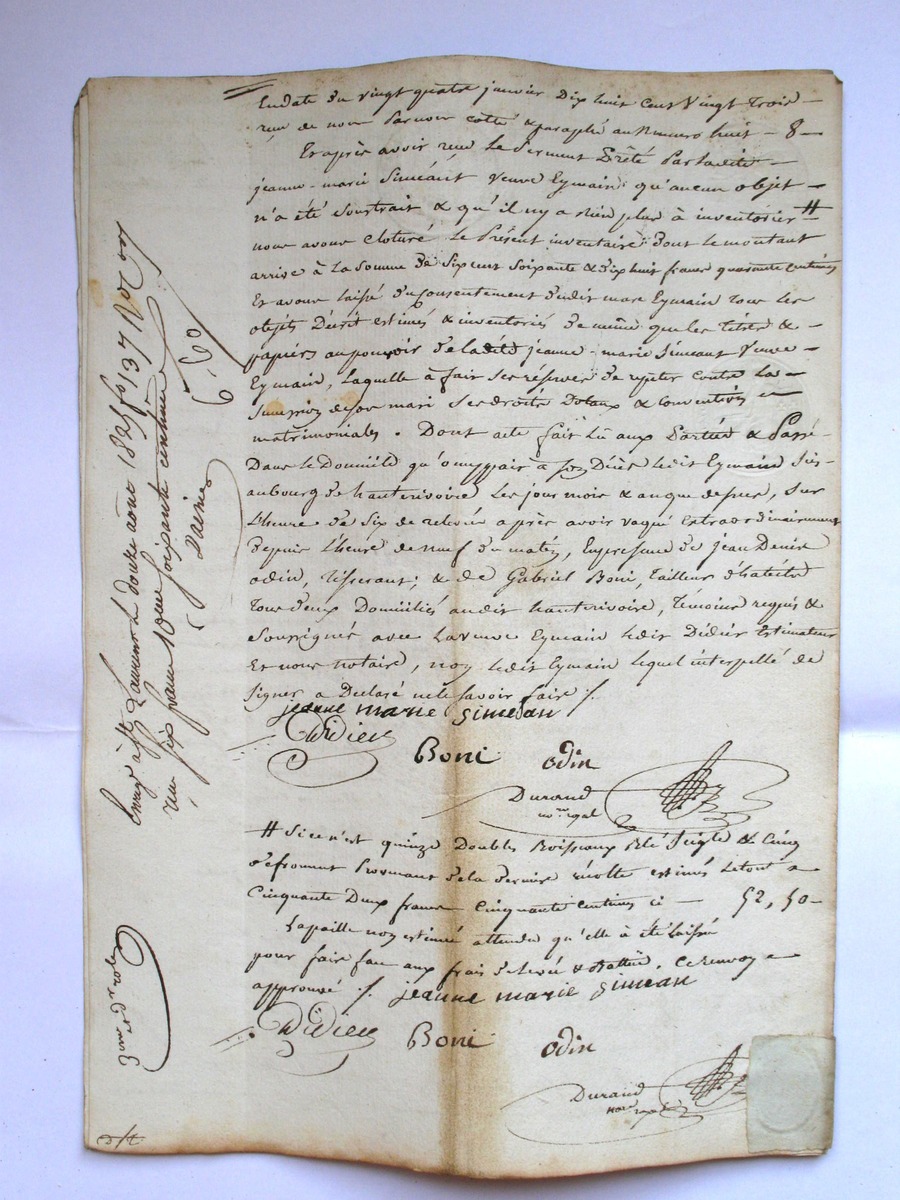 En date du vingt quatre janvier Dix huit cent vingt trois
de nous par nous cotté & paraphé au Numero huit - 8 -
Et après avoir reçu le Serment Prêté Par ladite
jeanne-marie Siméant Veuve Eymain qu'aucun objet
n'a été Soustrait & qu'il n'y a Rien plus à inventorier #
nous avons Cloturé le Présent inventaire dont le montant
arrive à la Somme de Six cent Soixante & dix huit francs quarante centimes
Et avons laissé du Consentement dudit Eymain tous les
objets Décrit estimés & inventoriés de même que les titres &
papiers au pouvoir de ladite jeanne-marie Simeant Veuve
Eymain, laquelle à fait ses réserves de répéter contre la
Succession de son mari ses droits Dotaux & conventions
matrimoniales. Dont acte fait lû aux Parties & Passé
Dans le Domicile qu'occuppait à son Décès ledit Eymain Sis
au bourg de hauterivoire les jour mois & an que dessus, Sur
l'heure de Six de relevée après avoir vaqué extraordinairement
depuis l'heure de neuf du matin, En présence de jean Denis
odin, tisserant; & de Gabriel Boni, tailleur d'habits
tous deux Domiciliés audit hauterivoire, témoins requis &
Soussignés avec la veuve Eymain ledit Didier Estimateur
Et nous notaire, non ledit Eymain lequel interpellé de
Signer a Déclaré ne le Savoir faire ./.
jeanne marie Simean
Didier
Boni odin
Durand
no.re royal
# Si ce n'est quinze Doubles Boisseaux Blé Seigle & Cinq
de froment Provenant de la dernière récolte estimés le tout
Cinquante Deux francs Cinquante centimes ci - 52, 50 -
La paille non estimée attendu qu'elle à été laissée
pour faire face aux frais de levée & Battue. Ce renvoy
approuvé ./. jeanne marie Siméan
Didier
Boni odin
Durand
no.re royal
le douze août 182
reçu six francs 10.me soixante centimes
6,60
3.me & d.r role